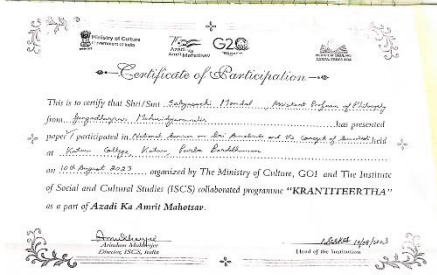 Ministry of Culture
Government of India
Azadi Ka
Amrit Mahotsav
G20
Certificate of Participation
This is to certify that Shri/Smt Satyanarki Mondal, Assistant Professor of Philosophy
from Mahavidyalaya has presented
paper / participated in National Seminar on Sri Aurobindo and the Concept of held
at Katwa College, Katwa, Purba Bardhaman
on 10th August 2023 organized by The Ministry of Culture, GOI and The Institute
of Social and Cultural Studies (ISCS) collaborated programme "KRANTITEERTHA"
as a part of Azadi Ka Amrit Mahotsav.
Arindam Mukherjee
Director, ISCS, India
10/08/2023
Head of the Institution